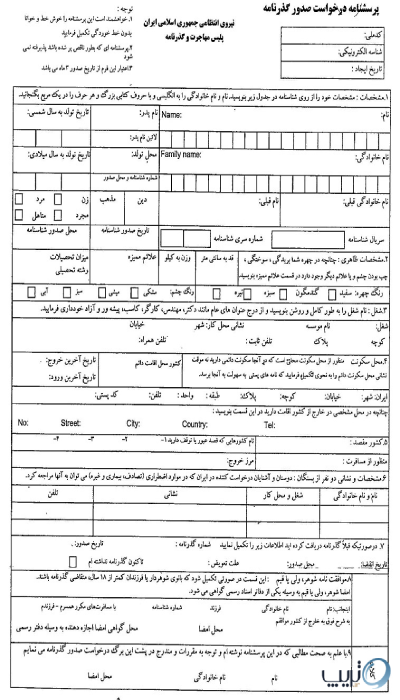 پرسشنامه درخواست صدور گذرنامه
نیروی انتظامی جمهوری اسلامی ایران
پلیس مهاجرت و گذرنامه
توجه :
۱.خواهشمند است این پرسشنامه را خوش خط و خوانا
بدون خط خوردگی تکمیل فرمایید
۲.پرسشنامه ای که بطور ناقص پر شده باشد پذیرفته نمی
شود
۳.اعتبار این فرم از تاریخ صدور ۲ ماه می باشد
کدملی:
شناسه الکترونیکی:
تاریخ ایجاد :
۱.مشخصات : مشخصات خود را از روی شناسنامه در جدول زیر بنویسید. نام و نام خانوادگی را به انگلیسی و با حروف کتابی بزرگ و هر حرف را در یک مربع بگنجانید.
نام: Name: نام پدر: تاریخ تولد به سال شمسی:
لاتین نام پدر:
نام خانوادگی: Family name: محل تولد: تاریخ تولد به سال میلادی:
شماره شناسنامه و محل صدور
نام خانوادگی قبلی: نام قبلی: دین مذهب زن مرد
مجرد متاهل
سریال شناسنامه شماره سری شناسنامه تاریخ صدور شناسنامه محل صدور شناسنامه
۲.مشخصات ظاهری : چنانچه در چهره شما بریدگی ، سوختگی ، قد به سانتی متر وزن به کیلو علائم ممیزه میزان تحصیلات
چپ بودن چشم و یا علائم دیگر وجود دارد در قسمت علائم ممیزه بنویسید. رشته تحصیلی
رنگ چهره: سفید گندمگون سبزه تیره رنگ چشم: مشکی میشی سبز آبی
۳.شغل : نام شغل را به طور کامل و روشن بنویسید و از درج عنوان های عام مانند دکتر، مهندس، کارگر، کاسب، پیشه ور و آزاد خودداری فرمایید.
شغل: نام موسسه نشانی محل کار: شهر خیابان
کوچه پلاک تلفن ثابت : تلفن همراه:
۴.محل سکونت منظور از محل سکونت محلی است که در آنجا سکونت دائمی دارید نه موقت کشور محل اقامت دائم تاریخ آخرین خروج:
نشانی محل سکونت دائم را به نحوی تکمیل فرمایید که نامه های پستی به سهولت به آنجا برسد. تاریخ آخرین ورود:
ایران: شهر: خیابان: کوچه: پلاک: طبقه : واحد : تلفن: کد پستی:
چنانچه در محل مشخصی در خارج از کشور اقامت دارید در این قسمت بنویسید :
No: Street: City: Country: Tel:
۵.کشور مقصد : نام کشورهایی که قصد عبور یا توقف دارید ۱- ۲- ۳- ۴-
منظور از مسافرت : مرز خروج:
۶.مشخصات و نشانی دو نفر از بستگان : دوستان و آشنایان درخواست کننده در ایران که در موارد اضطراری (تصادف، بیماری و غیره) می توان به آنها مراجعه کرد.
نام و نام خانوادگی شغل و محل کار نشانی تلفن
۷. درصورتیکه قبلاً گذرنامه دریافت کرده اید اطلاعات زیر را تکمیل نمایید شماره گذرنامه : تاریخ صدور:
تاریخ انقضا: محل صدور: علت تعویض : تاکنون گذرنامه نداشته ام
۸.موافقت نامه شوهر، ولی یا قیم : این قسمت در صورتی تکمیل شود که بانوی شوهردار یا فرزندان کمتر از ۱۸ سال، متقاضی گذرنامه باشند.
امضا شوهر، ولی یا قیم به وسیله یکی از دفاتر اسناد رسمی گواهی می شود.
اینجانب: نام نام خانوادگی فرزند شماره شناسنامه با مسافرت های مکرر همسرم - فرزندم
به شرح فوق به خارج از کشور موافقم محل امضا محل گواهی امضا اجازه دهنده به وسیله دفتر رسمی
۹.با علم به صحت مطالبی که در این پرسشنامه نوشته ام و توجه به مقررات و مندرج در پشت این برگ درخواست صدور گذرنامه می نمایم
نام نام خانوادگی امضا
کجارو تریپ